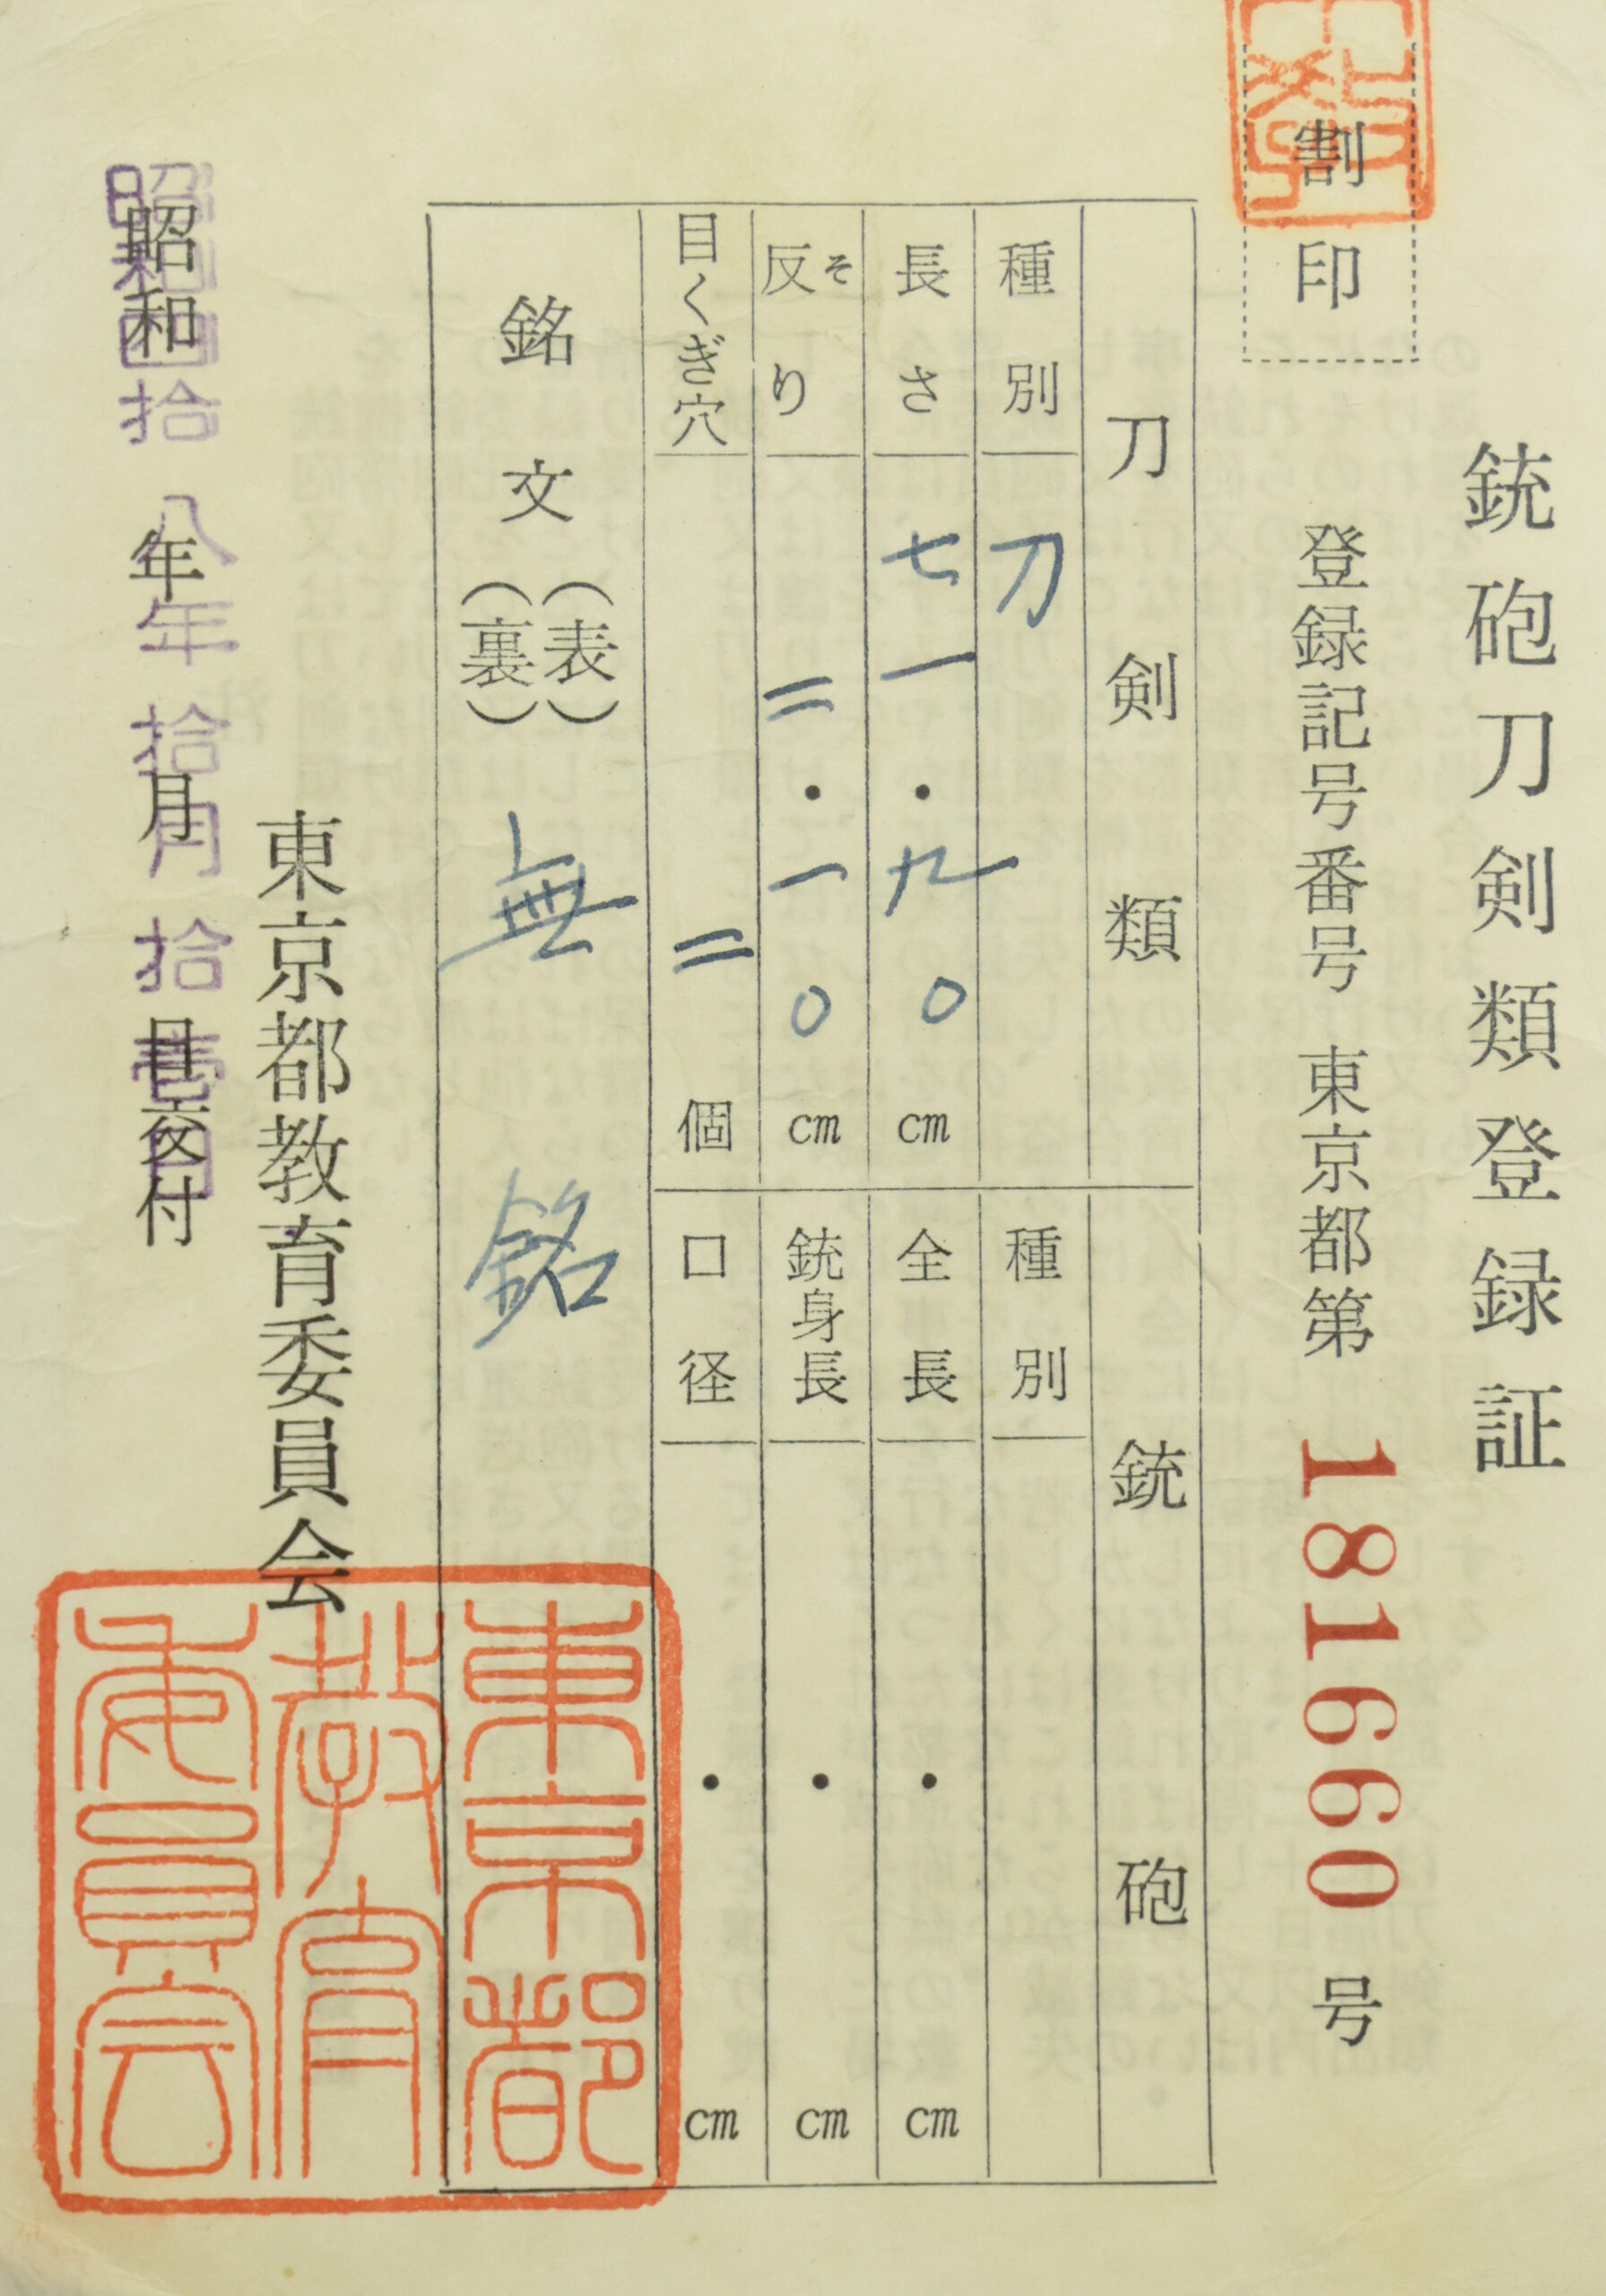 銃砲刀剣類登録証
割印
登録記号番号 東京都第 181660 号
刀剣類
種別 刀
長さ 七一・九〇 cm
反り そ 二・一〇 cm
目くぎ穴 二 個
銃砲
種別
全長 ・ cm
銃身長 ・ cm
口径 ・ cm
銘文(表)(裏) 無銘
東京都教育委員会
昭和 年 月 日交付
昭和四拾八年拾月拾壱日
東京都教育委員会